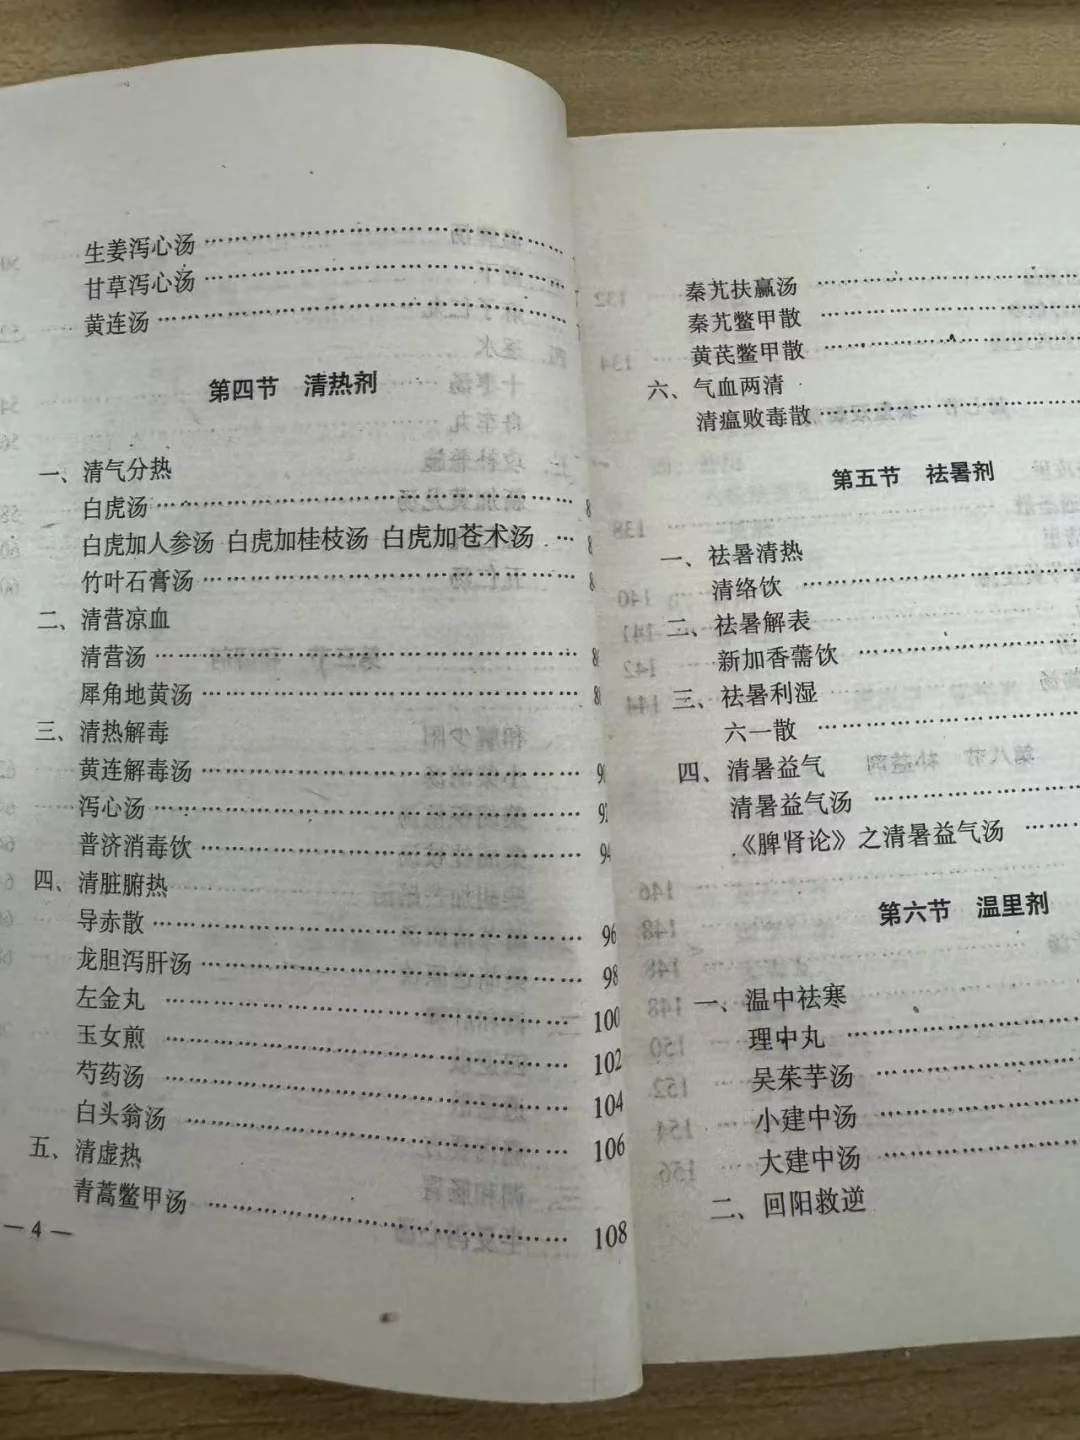 生姜泻心汤
甘草泻心汤
黄连汤
第四节 清热剂
一、清气分热
白虎汤 8
白虎加人参汤 白虎加桂枝汤 白虎加苍术汤 8
竹叶石膏汤 8
二、清营凉血
清营汤 8
犀角地黄汤 8
三、清热解毒
黄连解毒汤 9
泻心汤 92
普济消毒饮 94
四、清脏腑热
导赤散 96
龙胆泻肝汤 98
左金丸 100
玉女煎 102
芍药汤 104
白头翁汤 106
五、清虚热
青蒿鳖甲汤 108
— 4 —
秦艽扶羸汤
秦艽鳖甲散
黄芪鳖甲散
六、气血两清
清瘟败毒散
第五节 祛暑剂
一、祛暑清热
清络饮
二、祛暑解表
新加香薷饮
三、祛暑利湿
六一散
四、清暑益气
清暑益气汤
《脾肾论》之清暑益气汤
第六节 温里剂
一、温中祛寒
理中丸
吴茱芋汤
小建中汤
大建中汤
二、回阳救逆